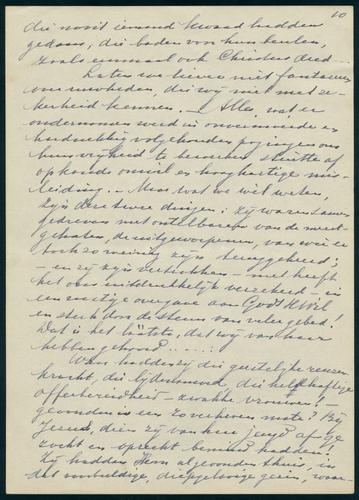 10
die nooit iemand kwaad hadden
gedaan, die baden voor hun beulen,
zoals eenmaal ook Christus deed...
Laten we liever niet fantaseeren
over wreedheden, die wij niet met ze-
kerheid kennen. — Alles, wat er
ondernomen werd in onvermoeide en
hardnekkig volgehouden pogingen om
hun vrijheid te bewerken, stuitte af
op koude onwil en hooghartige mis-
leiding. — Maar wat we wèl weten,
zijn deze twee dingen: zij waren samen
gedreven met ontelbaren van de meest
gehaten, de uitgeworpenen, van wie er
toch zo weinig zijn teruggekeerd;
— en zij zijn vertrokken — met heeft
het ons uitdrukkelijk verzekerd — in
een rustige overgave aan God's H. Wil
en sterk door de steun van veler gebed!
Dat is het laatste, dat wij van haar
hebben gehoord.......
Waar hadden zij die geestelijke reuzen-
kracht, die lijdensmoed, die heldhaftige
offerbereidheid — zwakke vrouwen! —
gevonden in een zo verheven mate? Bij
Jezus, dien zij van hun jeugd af ge-
zocht en oprecht bemind hadden!
Zij hadden Hem al gevonden thuis, in
dat eenvoudige, diepgelovige gezin, waar-